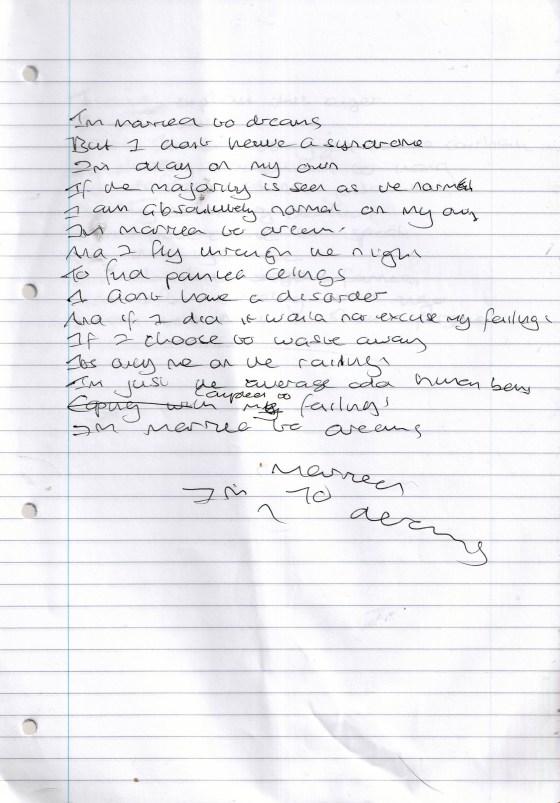 Im married to dreams
But I dont have a syndrome
Im okay on my own
If the majority is seen as the normal
I am absolutely normal on my own
Im married to dreams
And I fly through the night
To find painted ceilings
I dont have a disorder
And if I did it would not excuse my failings
If I choose to waste away
Its only me on the railings
Im just the average odd human being
Coping with my failings
Im married to dreams
married
Im To
dreams